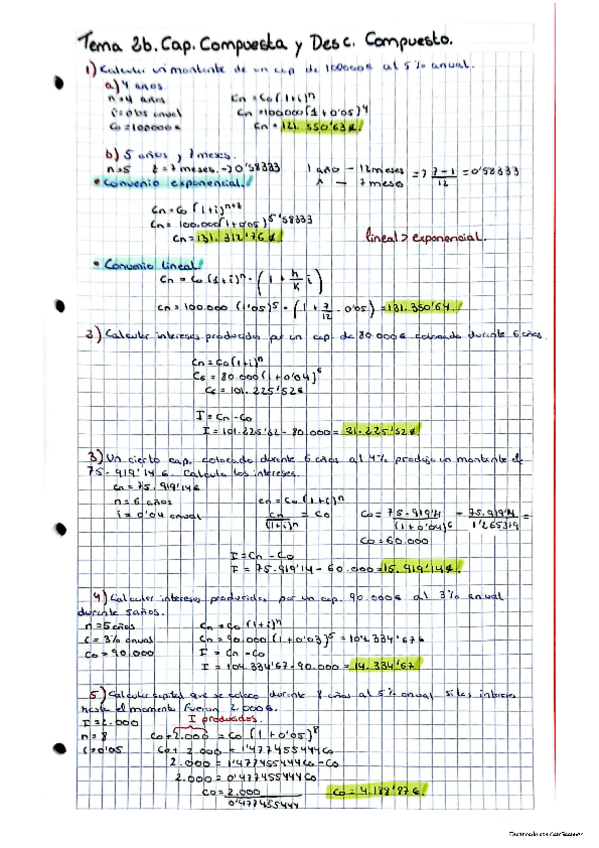 Tema 2b. Cap. Compuesta y Desc. Compuesto.
1) Calcular un montante de un cap de 100000€ al 5% anual.
a) 4 años.
n=4 años Cn = Co(1+i)^n
i=0'05 anual Cn = 100.000(1+0'05)^4
Co=100000€ Cn = 121.550'63€.
b) 5 años y 7 meses.
n=5 t=7 meses. -> 0'58333 1 año - 12 meses => 7·1/12 = 0'58333
x - 7 meso
• Convenio exponencial.
Cn = Co (1+i)^n+t
Cn = 100.000(1+0'05)^5'58333
Cn = 131.312'76€ lineal > exponencial.
• Convenio lineal
Cn = Co (1+i)^n · (1 + h/k i)
Cn = 100.000 (1'05)^5 · (1 + 7/12 · 0'05) = 131.350'64.
2) Calcular intereses producidos por un cap. de 80.000€ colocando durante 6 años.
Cn = Co(1+i)^n
C6 = 80.000(1+0'04)^6
C6 = 101.225'52€
I = Cn - Co
I = 101.225'52 - 80.000 = 21.225'52€.
3) Un cierto cap. colocado durante 6 años al 4% produjo un montante de
75.919'14€. Calcula los intereses.
Cn = 75.919'14€
n = 6 años Cn = Co (1+i)^n
i = 0'04 anual Cn/(1+i)^n = Co Co = 75.919'14/(1+0'04)^6 = 75.919'14/1'265319 =
Co = 60.000
I = Cn - Co
I = 75.919'14 - 60.000 = 15.919'14€.
4) Calcular intereses producidos por un cap. 90.000€ al 3% anual
durante 5 años.
n = 5 años Cn = Co (1+i)^n
i = 3% anual Cn = 90.000 (1+0'03)^5 = 104.334'67€
Co = 90.000 I = Cn - Co
I = 104.334'67 - 90.000 = 14.334'67
5) Calcular capital que se coloco durante 8 años al 5% anual si los intereses
hasta el momento fueron 2.000€.
I = 2.000 I producidos.
n = 8 Co + 2.000 = Co (1+0'05)^8
i = 0'05 Co + 2.000 = 1'477455444Co
2.000 = 1'477455444Co - Co
2.000 = 0'477455444Co
Co = 2.000/0'477455444 Co = 4.188'87€.